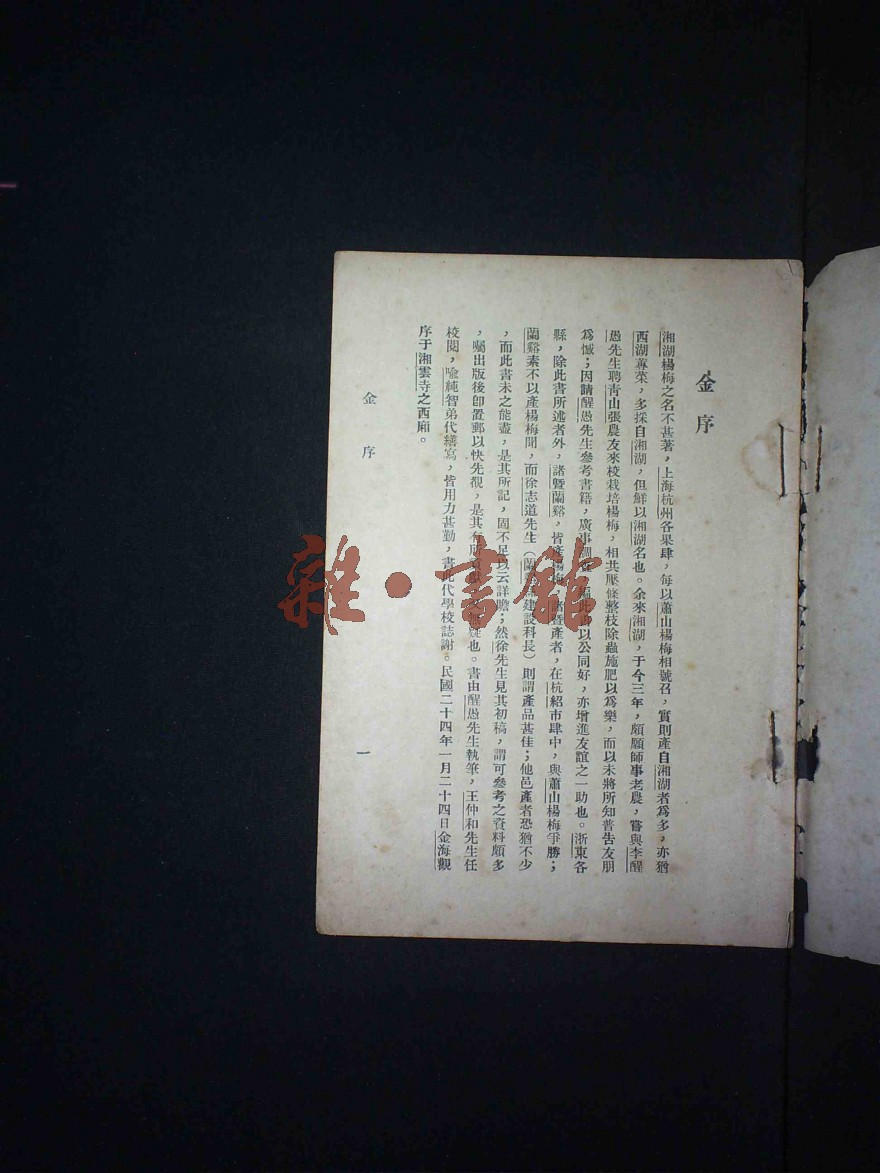 金序
湘湖楊梅之名不甚著，上海杭州各果肆，每以蕭山楊梅相號召，實則產自湘湖者爲多，亦猶
西湖蓴菜，多採自湘湖，但鮮以湘湖名也。余來湘湖，于今三年，頗願師事老農，嘗與李醒
愚先生聘青山張農友來校栽培楊梅，相共壓條整枝除蟲施肥以爲樂，而以未將所知普告友朋
爲憾；因請醒愚先生參考書籍，廣事調查，編此書以公同好，亦增進友誼之一助也。浙東各
縣，除此書所述者外，諸暨蘭谿，皆產楊梅，諸暨產者，在杭紹市肆中，與蕭山楊梅爭勝；
蘭谿素不以產楊梅聞，而徐志道先生（蘭谿建設科長）則謂產品甚佳；他邑產者恐猶不少
，而此書未之能盡，是其所記，固不足以云詳贍；然徐先生見其初稿，謂可參考之資料頗多
，囑出版後卽置郵以快先覩，是其有疑也。書由醒愚先生執筆，王仲和先生任
校閱，喩純智弟代繕寫，皆用力甚勤，書此代學校誌謝。民國二十四年一月二十四日金海觀
序于湘雲寺之西廂。
金序
一
雜·書館